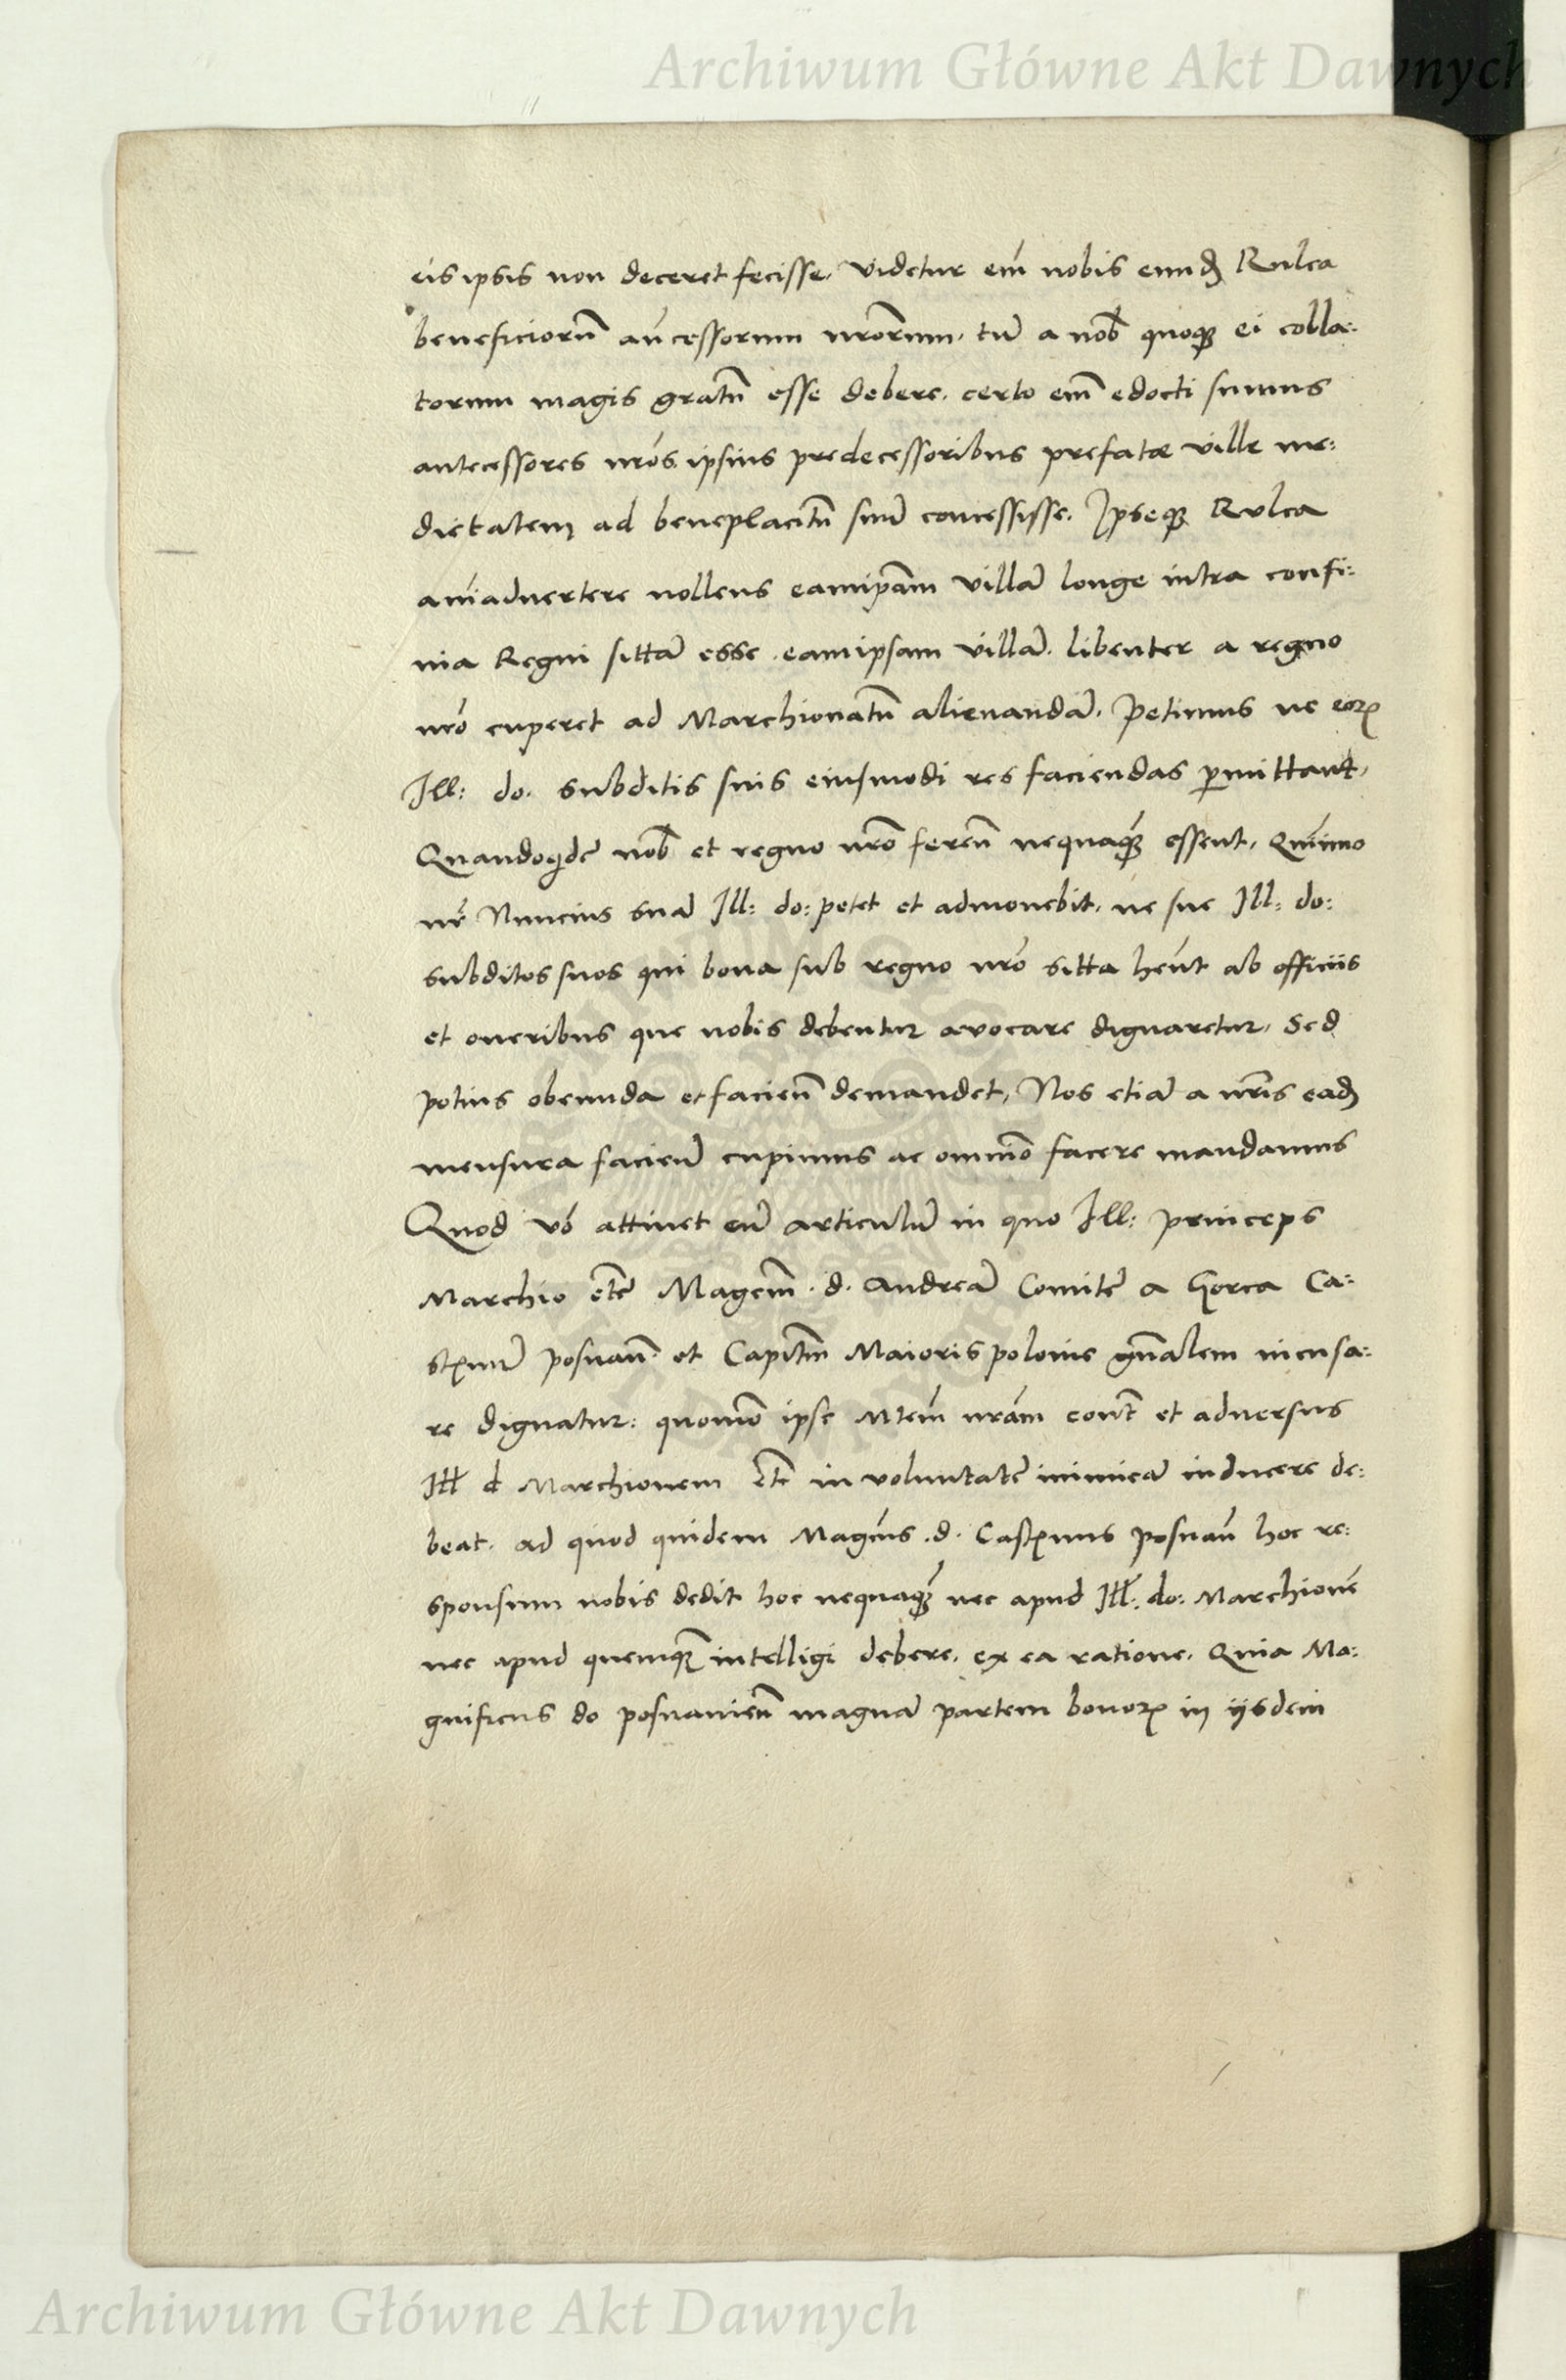 Archiwum Główne Akt Dawnych
eis ipsis non deceret fecisse. Videtur em̄ nobis eundē Rulca
beneficiorū añcessorum nrōrum, tū a nob̄ quoq ei colla:
torum magis gratū esse debere, certo em̄ edocti sumus
antecessores nrōs ipsius predecessoribus prefatæ ville me:
dietatem ad beneplacitū suū concessisse. Ipseq Rulca
aīadvertere nollens eamipsam̄ villā longe intra confi:
nia Regni sittā esse eamipsam villā. libenter a regno
nrō cuperet ad Marchionatū alienandā. Petimus ne eorꝝ
Ill: do. subditis suis eiusmodi res faciendas p̱mittant,
Quandoqdē nob̄ et regno nrō ferēn nequaq̄ essent, Quīimo
nr̄ Nuncius suā Ill: do: petet et admonebit, ne sue Ill: do:
subditos suos qui bona sub regno nrō sitta hēnt ab officiis
et oneribus que nobis debentur avocare dignaretur, Sed
potius obeunda et faciēn demandet, Nos etiā a nrīs eadē
mensura faciēn cupimus ac omnīo facere mandamus
Quod vō attinet eū articulū in quo Ill: princeps
Marchio etc̄ Magcm̄. d. Andreā Comitē a Gorca Ca:
stꝝnū posnan̄. et Capitm̄ Maioris polonie gn̄alem incusa:
re dignatur: quomō ipse Mtem̄ nrām cont̄ et adversus
Ill d Marchionem etc̄ in voluntatē inimicā inducere de:
beat. ad quod quidem Magcūs. d. Castꝝnus Posnan̄ hoc re:
sponsum nobis dedit hoc nequaq̄ nec apud Ill: do: Marchionē
nec apud quemq̄ intelligi debere. ex ea ratione. Quia Ma:
gnificus do posnaniēn magnā partem bonorꝝ in iisdem
Archiwum Główne Akt Dawnych